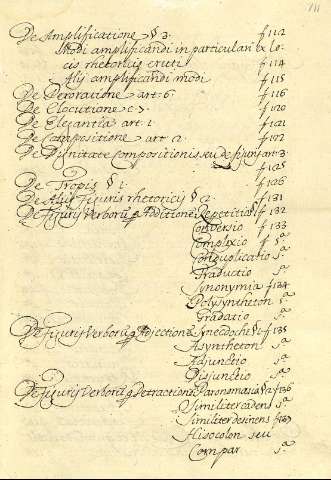 111
De Amplificatione § 3. f 112
Modi amplificandi in particulari ex lo-
cis rhetoricis eruti f 114
Alij amplificandi modi f 115
De Peroratione art. 6. f 116
De Elocutione c. 7. f 120
De Elegantia art. 1. f 121
De Compositione art. 2. f 122
De Dignitate compositionis seu de figuris art. 3.
f 125
De Tropis § 1. f 126
De Alijs Figuris rhetoricis § 2. f 131
De Figuris Verborū q Additione Repetitia f 132
Conversio f 133
Complexio f sª
Conduplicatio sª
Traductio sª
Synonymia f 134
Polysyntheton sª
Gradatio sª
De Figuris Verborū q Adjectione Synecdoche f 135
Asyntheton sª
Adjunctio sª
Disjunctio sª
De Figuris Verborū q Detractione Paronomasia f 136
Similiter cadens sª
Similiter desinens f 137
Hisocolon seu
Compar sª